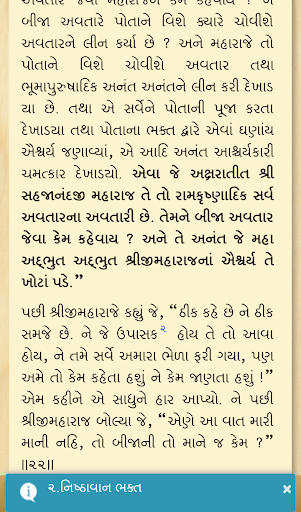 અવતાર જેવા મહારાજને કેમ કહેવાય ? ને
બીજા અવતારે પોતાને વિશે ક્યારે ચોવીશે
અવતારને લીન કર્યા છે ? અને મહારાજે તો
પોતાને વિશે ચોવીશે અવતાર તથા
ભૂમાપુરુષાદિક અનંત અનંતને લીન કરી દેખાડ
યા છે. તથા એ સર્વેને પોતાની પૂજા કરતા
દેખાડયા તથા પોતાના ભક્ત દ્વારે એવાં ઘણાંય
ઐશ્વર્ય જણાવ્યાં, એ આદિ અનંત આશ્ચર્યકારી
ચમત્કાર દેખાડયો. એવા જે અક્ષરાતીત શ્રી
સહજાનંદજી મહારાજ તે તો રામકૃષ્ણાદિક સર્વ
અવતારના અવતારી છે. તેમને બીજા અવતાર
જેવા કેમ કહેવાય ? અને તે અનંત જે મહા
અદ્ભુત અદ્ભુત શ્રીજીમહારાજનાં ઐશ્વર્ય તે
ખોટાં પડે.”
પછી શ્રીજીમહારાજે કહ્યું જે, “ઠીક કહે છે ને ઠીક
સમજે છે. ને જે ઉપાસક૨ હોય તે તો આવા
હોય, ને તમે સર્વે અમારા ભેળા ફરી ગયા, પણ
અમે તો કેમ કહેતા હશું ને કેમ જાણતા હશું !”
એમ કહીને એ સાધુને હાર આપ્યો. ને પછી
શ્રીજીમહારાજ બોલ્યા જે, “એણે આ વાત મારી
માની નહિ, તો બીજાની તો માને જ કેમ ?”
॥૨૨॥
૨.નિષ્ઠાવાન ભક્ત